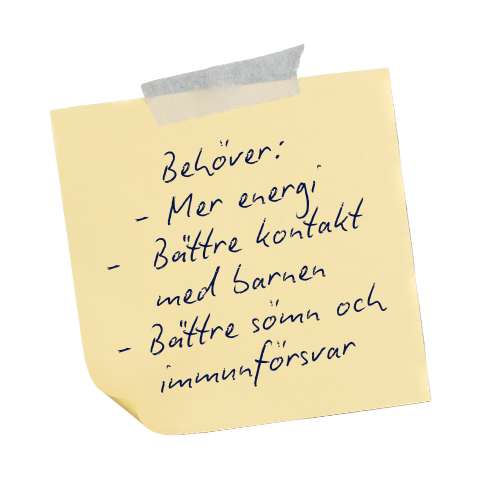 Behöver:
- Mer energi
- Bättre kontakt
med barnen
- Bättre sömn och
immunförsvar